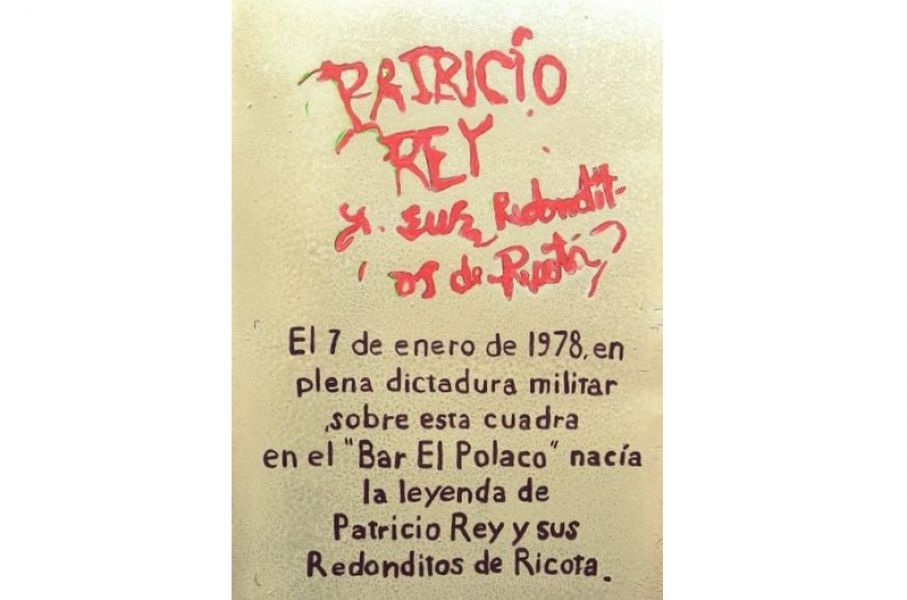 PATRICIO
REY
y sus Redondit-
os de Ricota
El 7 de enero de 1978, en
plena dictadura militar
,sobre esta cuadra
en el "Bar El Polaco" nacía
la leyenda de
Patricio Rey y sus
Redonditos de Ricota.